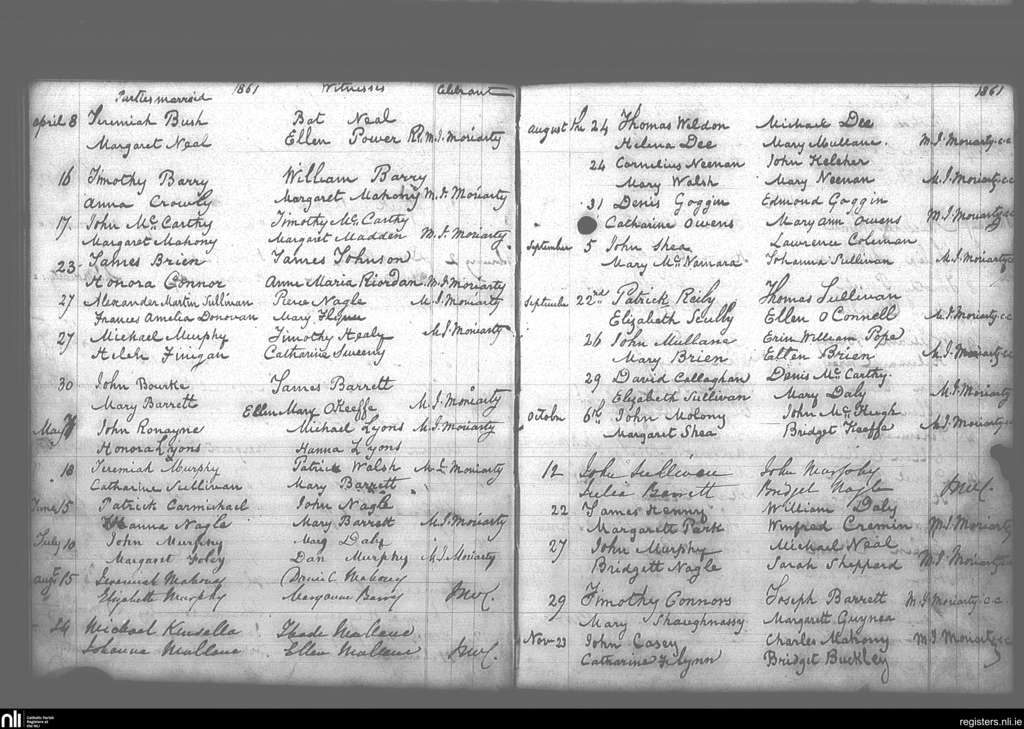 Parties married 1861 Witnesses Celebrant
April 8 Jeremiah Bush Bat Neal
Margaret Neal Ellen Power M. J. Moriarty
16 Timothy Barry William Barry
Anna Crowly Margaret Mahony M. J. Moriarty
17. John McCarthy Timothy McCarthy
Margaret Mahony Margaret Madden M. J. Moriarty
23 James Brien James Johnson
Honora Connor Anne Maria Riordan M. J. Moriarty
27 Alexander Martin Sullivan Pierce Nagle M. J. Moriarty
Frances Amelia Donovan Mary
27 Michael Murphy Timothy Healy M. J. Moriarty
Finigan Catharine Sweeny
30 John Bourke James Barrett
Mary Barrett Ellen Mary O'Keeffe M. J. Moriarty
May John Ronayne Michael Lyons M. J. Moriarty
Honora Lyons Hanna Lyons
18 Jeremiah Murphy Patrick Walsh M. J. Moriarty
Catharine Sullivan Mary Barrett
June 15 Patrick Carmichael John Nagle
Hanna Nagle Mary Barrett M. J. Moriarty
July 10 John Murphy Mary Daly
Margaret Foley Dan Murphy M. J. Moriarty
augt 15 Jeremiah Mahony Mahony
Elizabeth Murphy Maryanne Barry
24 Michael Kinsella Thade Mallane
Johanna Mallane Ellen Mallane
1861
August the 24 Thomas Weldon Michael Dee
Helena Dee Mary Mullane. M. J. Moriarty. c.c
24 Cornelius Neenan John Keleher
Mary Walsh Mary Neenan M. J. Moriarty. c.c
31 Denis Goggin Edmond Goggin
Catharine Owens Mary Ann Owens M. J. Moriarty c.c
September 5 John Shea Lawrence Coleman
Mary McNamara Johanna Sullivan M. J. Moriarty
September 22nd Patrick Reily Thomas Sullivan
Elizabeth Scully Ellen O'Connell M. J. Moriarty. c.c
26 John Mullane William Pope
Mary Brien Ellen Brien M. J. Moriarty. c.c
29 David Callaghan Denis McCarthy.
Elizabeth Sullivan Mary Daly M. J. Moriarty
October 6th John Molony John McKeogh
Margaret Shea Bridget Keeffe M. J. Moriarty
12 John Sullivan John
Julia Barrett Bridget Nagle
22 James Kenny William Daly
Margarett Park Winifred Cremin M. J. Moriarty
27 John Murphy Michael Neal
Bridgett Nagle Sarah Sheppard M. J. Moriarty
29 Timothy Connors Joseph Barrett M. J. Moriarty c.c
Mary Shaughnassy Margarett Guynea
Nov 23 John Casey Charles Mahony M. J. Moriarty. c.c
Catharine Flynn Bridget Buckley
nli Catholic Parish Registers at the NLI
registers.nli.ie